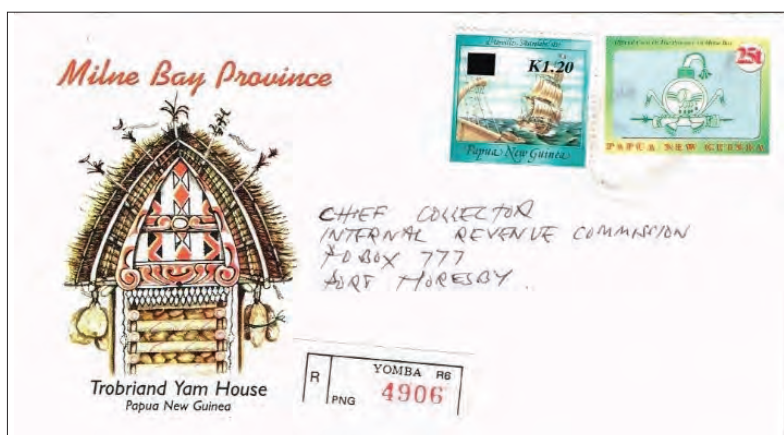 Milne Bay Province
K1.20
Papua New Guinea
25t
PAPUA NEW GUINEA
CHIEF COLLECTOR
INTERNAL REVENUE COMMISSION
PO BOX 777
PORT MORESBY.
R
YOMBA R6
PNG 4906
Trobriand Yam House
Papua New Guinea